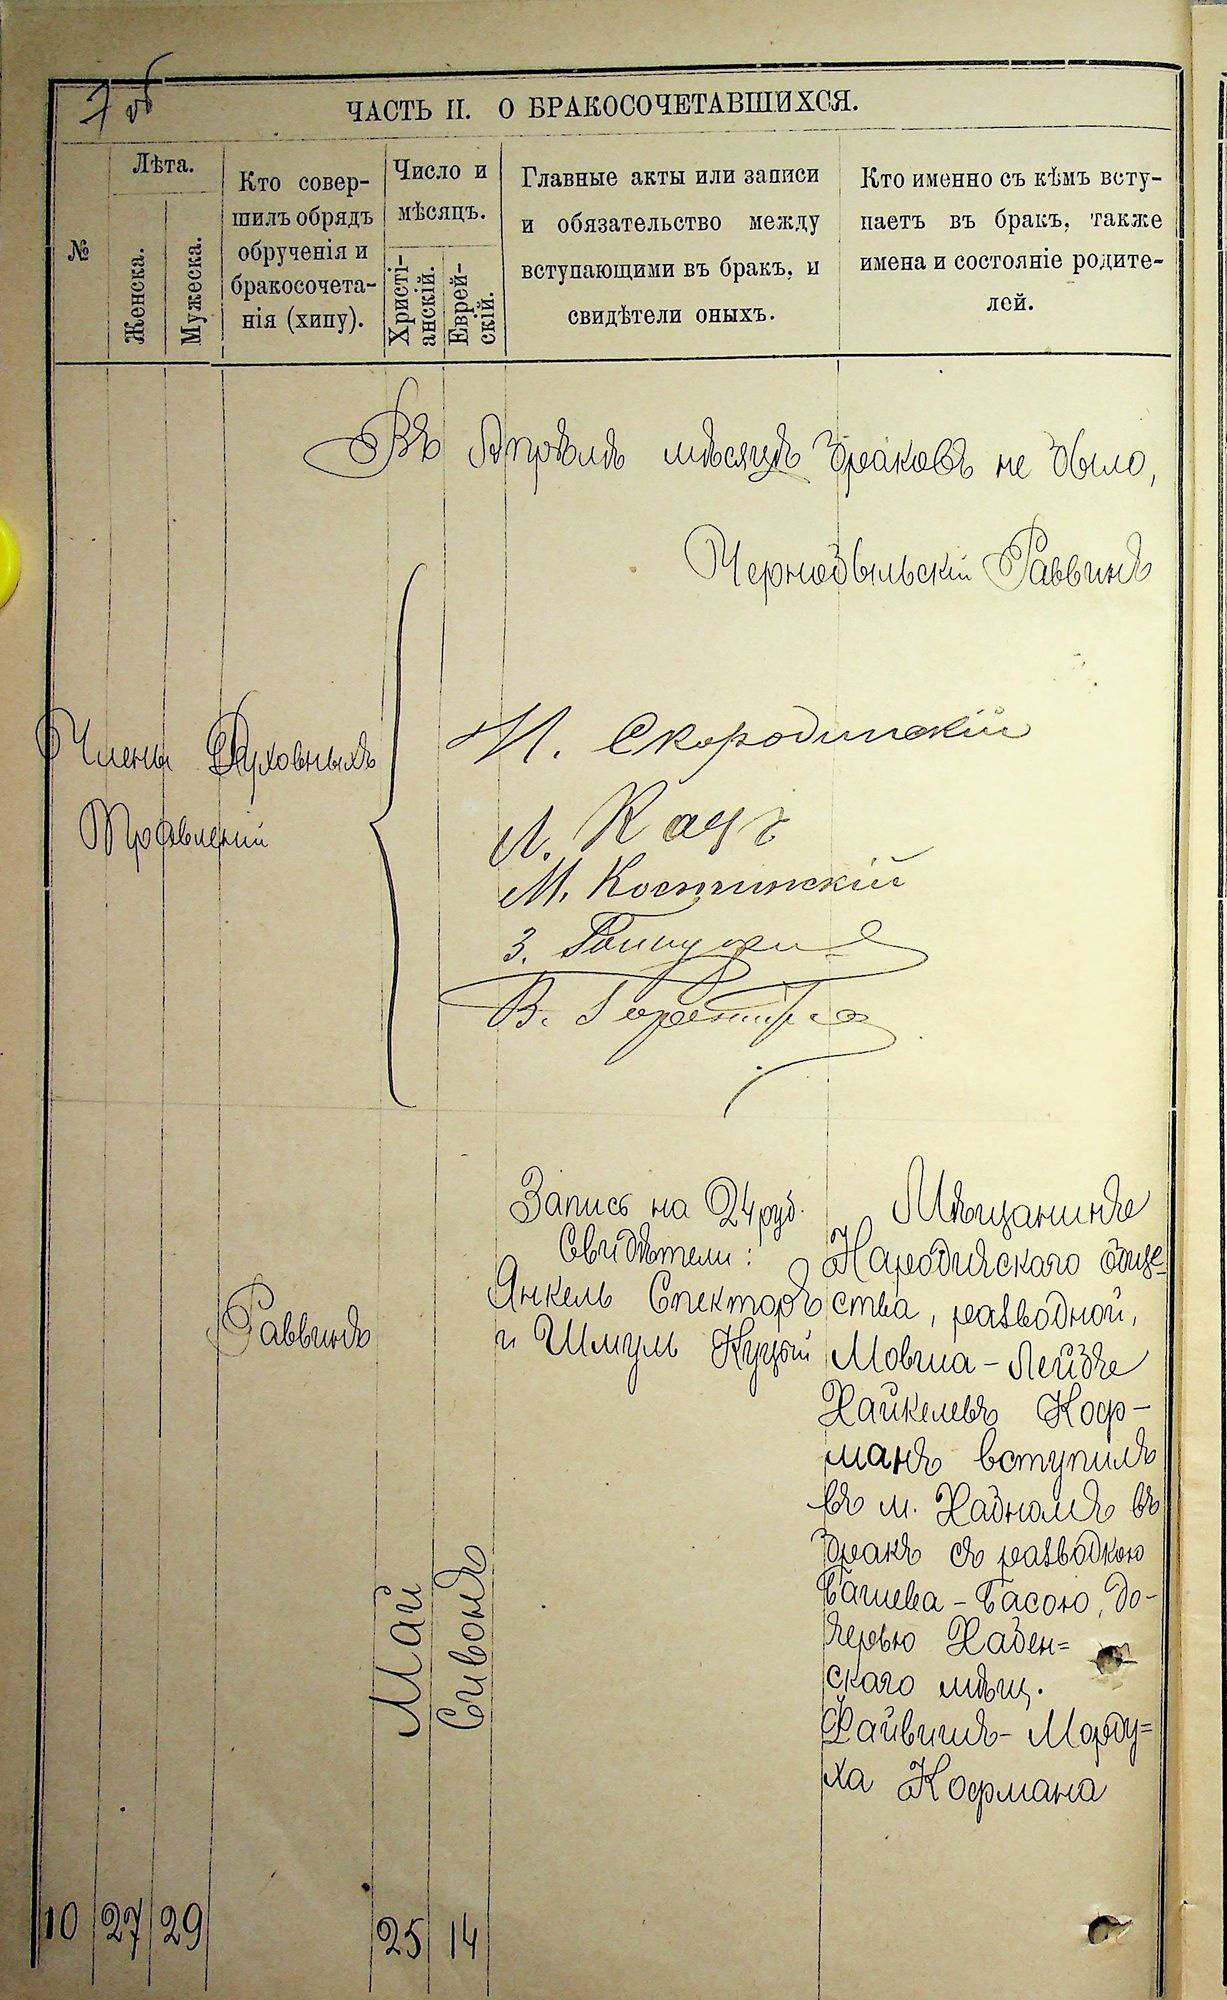 7 об
ЧАСТЬ II. О БРАКОСОЧЕТАВШИХСЯ.
№
Лѣта.
Женска.
Мужеска.
Кто совер-
шилъ обрядъ
обрученія и
бракосочета-
нія (хипу).
Число и
мѣсяцъ.
Христі-
анскій.
Еврей-
скій.
Главные акты или записи
и обязательство между
вступающими въ бракъ, и
свидѣтели оныхъ.
Кто именно съ кѣмъ всту-
паетъ въ бракъ, также
имена и состояніе родите-
лей.
Въ Апрѣлѣ мѣсяцѣ браковъ не было,
Чернобыльскій Раввинъ
Члены Духовныхъ
Правленій
И. Скородинскій
Л. Кацъ
М. Костинскій
З.
В.
10
27
29
Раввинъ
Май
25
Сивонъ
14
Запись на 24 руб.
Свидѣтели:
Янкель Спекторъ
и Шмуль Куцый
Мѣщанинъ
Народичскаго обще-
ства, разводной,
Мовша-Лейбъ
Хайкелевъ Коф-
манъ вступилъ
въ м. Хабномъ въ
бракъ съ разводкою
Башева-Басою, до-
черью Хабен=
скаго мѣщ.
Файвишъ-Морду=
ха Кофмана